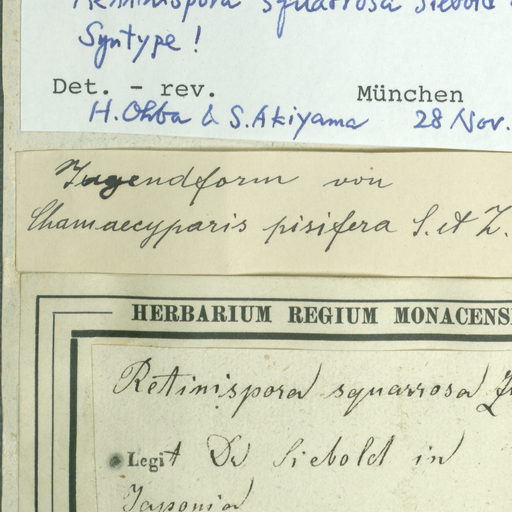 Retinispora squarrosa Siebold
Syntype!
Det. - rev. München
H. Ohba & S. Akiyama 28 Nov.
Jugendform von
Chamaecyparis pisifera S. et Z.
HERBARIUM REGIUM MONACENS
Retinispora squarrosa
Legit Dr Siebold in
Japonia